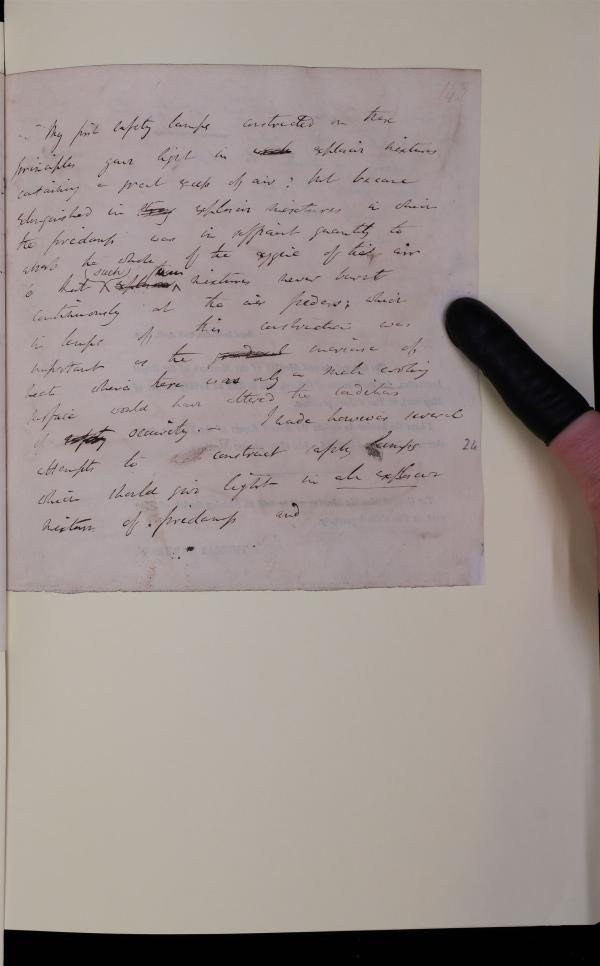 143
My first safety lamps constructed on these
principles gave light in such explosive mixtures
containing a great excess of air; but became
extinguished in explosive mixtures in which
the firedamp was in sufficient quantity to
absorb the whole of the oxygene of the air
so that such mixtures never burnt
continuously at the air feeders; which
in lamps of this construction was
important as the increase of
heat where there was only a small cooling
surface would have altered the conditions
of safety security. — I made however several
attempts to construct safety lamps
24
which should give light in all explosive
mixtures of firedamp and